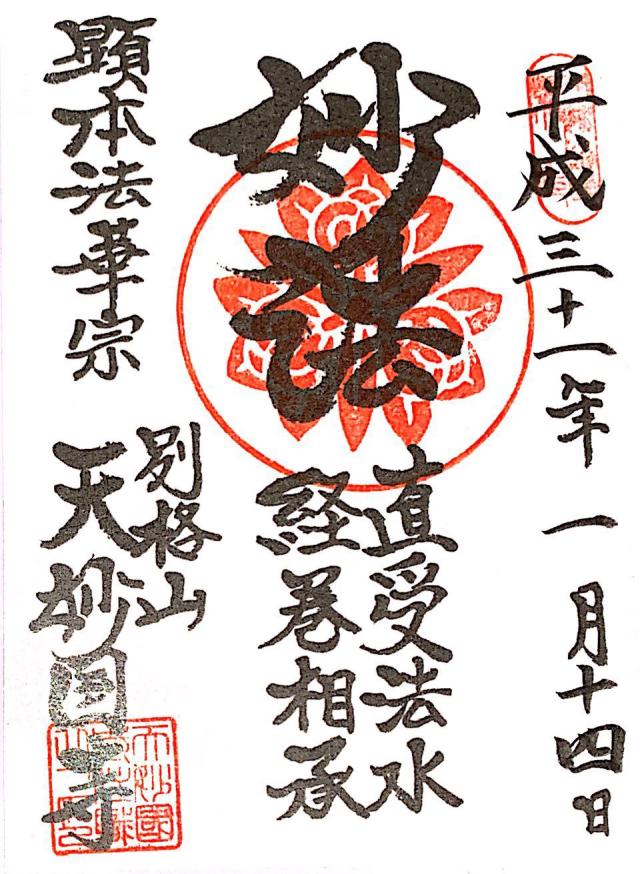 平成三十一年 一月十四日
妙法
直受法水
経巻相承
別格山
天妙国寺
顕本法華宗